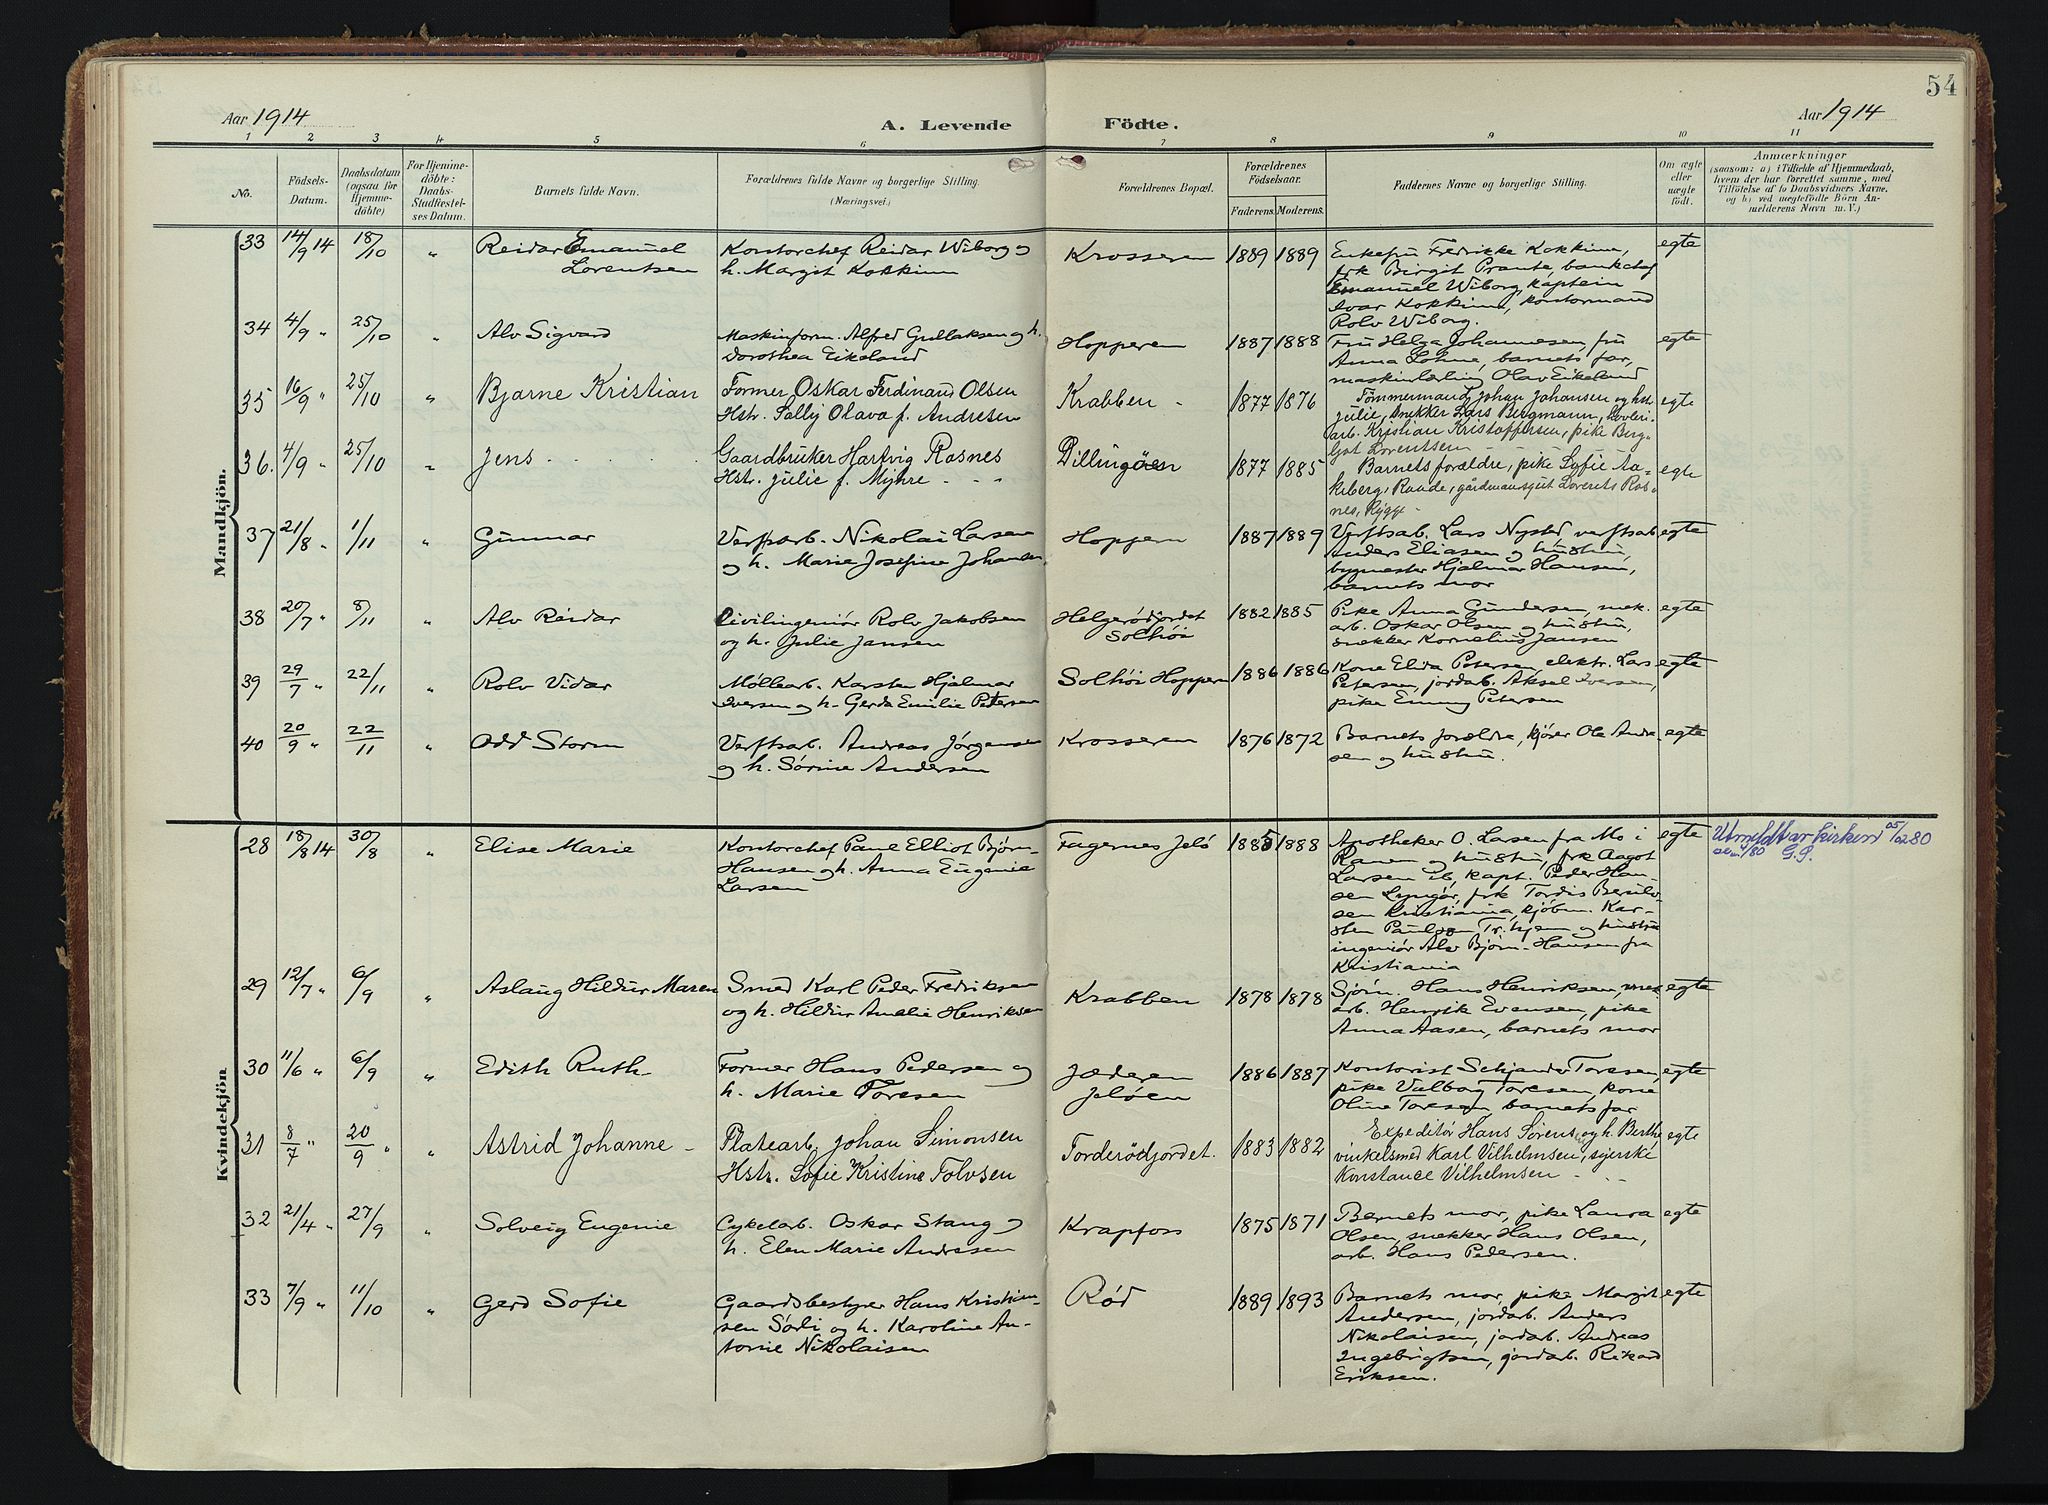 54
Aar 1914
A. Levende Födte.
Aar 1914
1 2 3 4 5 6 7 8 9 10 11
No.
Födsels-Datum.
Daabsdatum (ogsaa for Hjemmedöbte)
For Hjemmedöbte: Daabs-Stadfæstelses Datum.
Barnets fulde Navn.
Forældrenes fulde Navne og borgerlige Stilling. (Næringsvei.)
Forældrenes Bopæl.
Forældrenes Födselsaar.
Faderens. Moderens.
Faddernes Navne og borgerlige Stilling.
Om ægte eller uægte födt.
Anmærkninger
(saasom: a) i Tilfælde af Hjemmedaab, hvem der har forrettet samme, med Tilföielse af to Daabsvidners Navne. og b) ved uægtefödte Börn Anmelderens Navn m. V.)
Mandkjön.
33 14/9 14 18/10 " Reidar Emanuel Lorentsen
Kontorchef Reidar Wiborg og
h. Margit Kokkinn
Krosseren 1889 1889
Enkefru Fredrikke Kokkinn,
frk Birgit Prante, bankchef
Emanuel Wiborg, kaptein
Ivar Kokkinn, kontormand
Rolv Wiborg.
egte
34 4/9 " 25/10 " Alv Sigvard
Maskinform. Alfred Gullaksen og h.
Dorothea Eikeland
Hopperen 1887 1888
Fru Helga Johannesen, fru
Anna Lohne, barnets far,
maskinlærling Olav Eikeland
egte
35 16/9 " 25/10 " Bjarne Kristian
Former Oskar Ferdinand Olsen
Hstr. Sally Olava f. Andresen
Krabben - 1877 1876
Tømmermand Johan Johansen og hst.
Julie, snekker Lars Bergmann, høvleri-
arb. Kristian Kristoffersen, pike Berg-
ljot Lorentsen
egte
36. 4/9 " 25/10 " Jens
Gaardbruker Hartvig Rosnes
Hstr. Julie f. Myhre
Dillingöen 1877 1885
Barnets forældre, pike Sofie Aa-
keberg, Raade, gårdmansgut Lorents Ros-
nes, Rygge
egte
37 21/8 " 1/11 " Gunnar
Verftsarb. Nikolai Larsen
og h. Marie Josefine Johansen
Hoppern 1887 1889
Verftsarb. Lars Nysted, verftsarb
Anders Eliasen og hustru,
bygmester Hjalmar Hansen,
barnets mor
egte
38 20/7 " 8/11 " Alv Reidar
Civilingeniör Rolv Jakobsen
og h. Julie Jansen
Helgerødjordet
Solhöi
1882 1885
Pike Anna Gundersen, mek.
arb. Oskar Olsen og hustru,
snekker Kornelius Jansen
egte
39 29/7 " 22/11 " Rolv Vidar
Møllearb. Karsten Hjalmar
Iversen og h. Gerda Emilie Petersen
Solhöi Hoppern 1886 1886
Kone Elida Petersen, elektr. Lars
Petersen, jordarb. Aksel Iversen,
pike Emmy Petersen
egte
40 20/9 " 22/11 " Odd Storm
Verftsarb. Andreas Jørgensen
og h. Sørine Andersen
Krosseren 1876 1872
Barnets forældre, kjörer Ole Andre-
sen og hustru.
egte
Kvindekjön
28 18/8 14 30/8 " Elise Marie
Kontorchef Paul Elliot Bjørn-
Hansen og h. Anna Eugenie
Larsen
Fagernes Jelö 1885 1888
Apotheker O. Larsen fra Mo i
Ranen og hustru, frk Aagot
Larsen ib, kapt. Peder Han-
sen Lyngør, frk Tordis
Kristiania, kjøbm. Kar-
sten Paulson Tr.hjem og hustru
ingeniör Alv Bjørn-Hansen fra
Kristiania
egte
Utmeldt av kirken 05/02 80
G.P.
29 12/7 " 6/9 " Aslaug Hildur Maren
Smed Karl Peder Fredriksen
og h. Hildur Amalie Henriksen
Krabben 1878 1878
Sjöm. Hans Henriksen, mek.
arb. Henrik Evensen, pike
Anna Aasen, barnets mor
egte
30 11/6 " 6/9 " Edith Ruth
Former Hans Pedersen og
h. Marie Toresen
Jæderen
Jelöen
1886 1887
Kontorist Schjander Toresen,
pike Valborg Toresen, kone
Oline Toresen, barnets far
egte
31 8/7 " 20/9 " Astrid Johanne
Platearb. Johan Simonsen
Hstr. Sofie Kristine Tolvsen
Torderödjordet. 1883 1882
Expeditör Hans Sørens og h. Berthe
vinkelsmed Karl Vilhelmsen, syerske
Konstance Vilhelmsen
egte
32 21/4 " 27/9 " Solveig Eugenie
Cykelarb. Oskar Stang og
h. Elen Marie Andresen
Krapfoss 1875 1871
Barnets mor, pike Laura
Olsen, snekker Hans Olsen,
arb. Hans Pedersen.
egte
33 7/9 " 11/10 " Gerd Sofie
Gaardsbestyrer Hans Kristian-
sen Sørli og h. Karoline An-
tonie Nikolaisen
Rød 1889 1893
Barnets mor, pike Margit
Andersen, jordarb. Anders
Nikolaisen, jordarb. Andreas
Ingebrigtsen, jordarb. Rikard
Eriksen.
egte